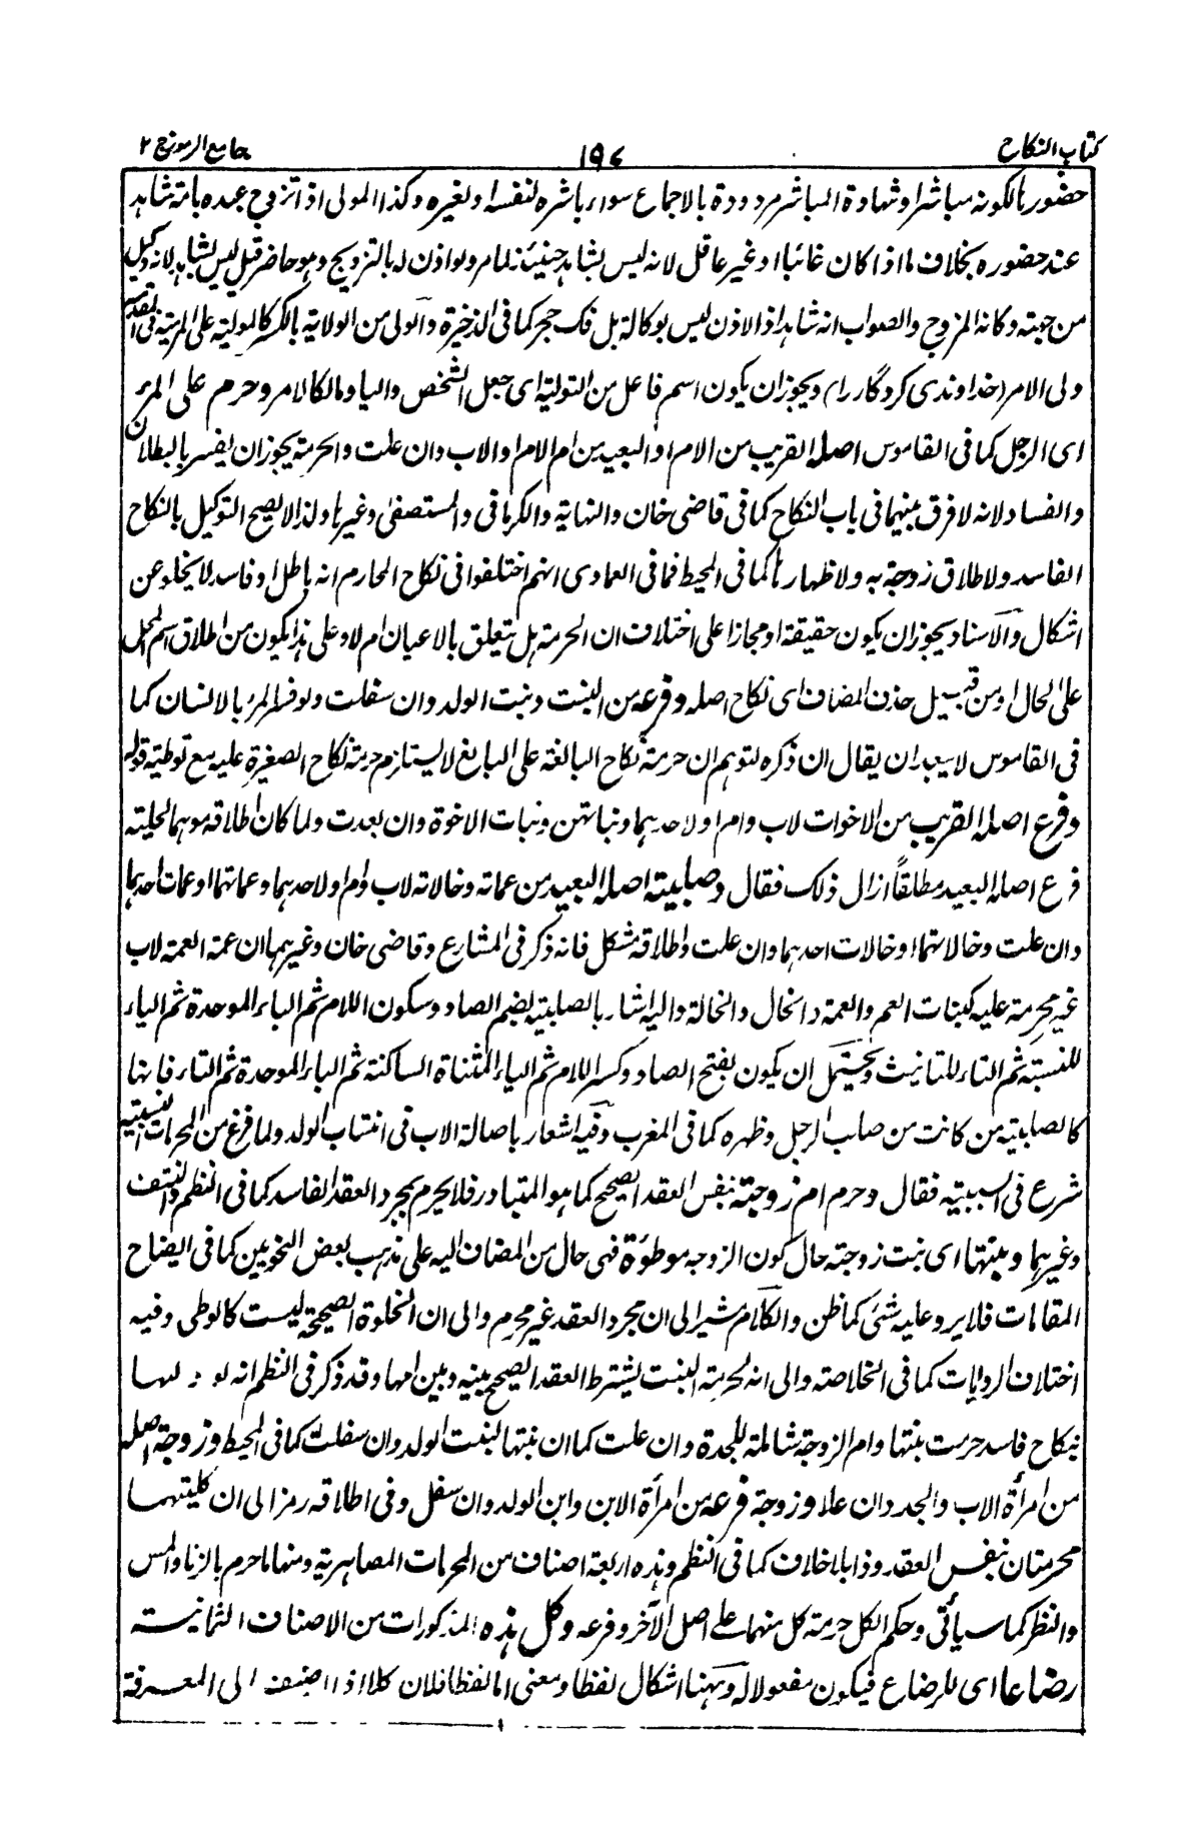 كتاب النكاح ١٩٧ جامع الرموز ج ٢
حضورها لكونه مباشرا وشهادة المباشر مردودة بالاجماع سواء باشره لنفسه او لغيره وكذا المولى اذا تزوج عبده بامة شاهد
عند حضوره بخلاف ما اذا كان غائبا او غير عاقل لانه ليس بشاهد حينئذ لما مر ولو اذن له بالتزويج وهو حاضر قيل ليس بشاهد لانه وكيل
من جهته وكانه المزوج والصواب انه شاهد اذ الاذن ليس بوكالة بل فك حجر كما فى الذخيرة والولى من الولاية بالكسر كالمولية على المرية فى المقدمة
ولى الامر (خداوندى كردگار را) ويجوز ان يكون اسم فاعل من التولية اى جعل الشخص واليا ومالكا لامر وحرم على المرء
اى الرجل كما فى القاموس اصله القريب من الام او البعيد من ام الام او الاب وان علت والحرمة يجوز ان يفسر بالبطلان
والفساد لانه لا فرق بينهما فى باب النكاح كما فى قاضى خان والنهاية والكرمانى والمستصفى وغيرها ولذا لا يصح التوكيل بالنكاح
الفاسد ولا طلاق زوجة به ولا ظهارها كما فى المحيط فما فى العمادى انهم اختلفوا فى نكاح المحارم انه باطل او فاسد لا يخلو عن
اشكال والاسناد يجوز ان يكون حقيقة او مجازا على اختلاف ان الحرمة هل يتعلق بالاعيان ام لا وعلى هذا يكون من اطلاق اسم المحل
على الحال او من قبيل حذف المضاف اى نكاح اصله وفرعه من البنت وبنت الولد وان سفلت ولو فسر المرء بالانسان كما
فى القاموس لا يبعد ان يقال ان ذكره لتوهم ان حرمة نكاح البالغة على البالغ لا يستلزم حرمة نكاح الصغيرة عليه مع توطية قوله
وفرع اصله القريب من الاخوات لاب وام او لاحدهما وبناتهن وبنات الاخوة وان بعدت ولما كان اطلاقه موهما لحلية
فرع اصله البعيد مطلقاً ازال ذلك فقال وصلبية اصله البعيد من عماته وخالاته لاب وام او لاحدهما وعماتهما او عمات احدهما
وان علت وخالاتهما او خالات احدهما وان علت واطلاقه مشكل فانه ذكر فى المشارع وقاضى خان وغيرهما ان عمة العمة لاب
غير محرمة عليه كبنات العم والعمة والخال والخالة واليه اشار بالصلبية بضم الصاد وسكون اللام ثم الباء الموحدة ثم الياء
للنسبة ثم التاء للتانيث ويحتمل ان يكون بفتح الصاد وكسر اللام ثم الياء المثناة الساكنة ثم الباء الموحدة ثم التاء فانها
كالصلبية من كانت من صلب الرجل وظهره كما فى المغرب وفيه اشعار باصالة الاب فى انتساب الولد ولما فرغ من المحرمات النسبية
شرع فى السببية فقال وحرم ام زوجته بنفس العقد الصحيح كما هو المتبادر فلا يحرم بمجرد العقد الفاسد كما فى النظم والنتف
وغيرهما وبنتها اى بنت زوجته حال كون الزوجه موطؤة فهى حال من المضاف اليه على مذهب بعض النحويين كما فى ايضاح
المقامات فلا يرد عليه شئ كما ظن والكلام مشير الى ان مجرد العقد غير محرم والى ان الخلوة الصحيحة ليست كالوطى وفيه
اختلاف الروايات كما فى الخلاصة والى انه لحرمة البنت يشترط العقد الصحيح بينه وبين امها وقد ذكر فى النظم انه لو
بنكاح فاسد حرمت بنتها وام الزوجة شاملة للجدة وان علت كما ان بنتها لبنت الولد وان سفلت كما فى المحيط وزوجة اصله
من امرأة الاب والجد وان علا وزوجة فرعه من امرأة الابن وابن الولد وان سفل وفى اطلاقه رمز الى ان كليتهما
محرمتان بنفس العقد وذا بلا خلاف كما فى النظم وهذه اربعة اصناف من المحرمات المصاهرية ومنها ما حرم بالزنا والمس
والنظر كما سيأتى وحكم الكل حرمة كل منهما على اصل الآخر وفرعه وكل هذه المذكورات من الاصناف الثمانية
رضاعا اى للرضاع فيكون مفعولا له وههنا اشكال لفظا ومعنى اما لفظا فلان كلا اذا اضيف الى المعرفة